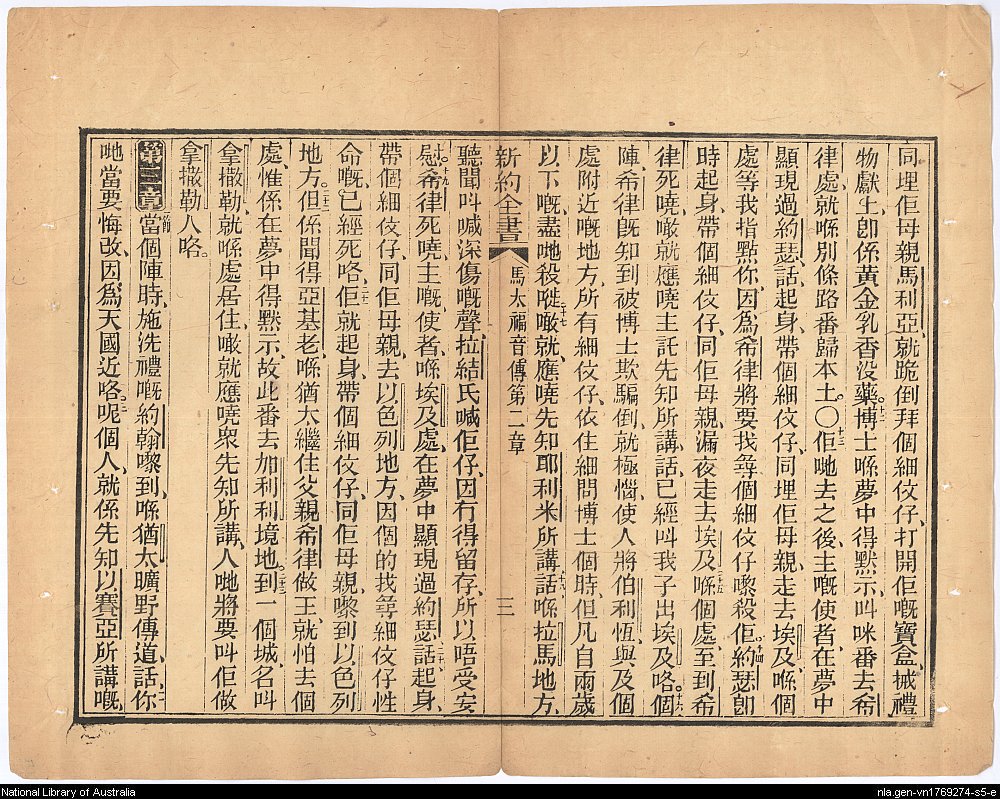 同埋佢母親馬利亞、就跪倒拜個細伩仔、打開佢嘅寶盒、撠禮
物獻上、卽係黃金乳香没藥。十二博士喺夢中得默示、叫咪番去希
律處、就喺別條路番歸本土。〇十三佢哋去之後、主嘅使者、在夢中
顯現過約瑟、話、起身、帶個細伩仔、同埋佢母親、走去埃及、喺個
處、等我指點你、因爲希律將要找尋個細伩仔嚟殺佢。十四約瑟卽
時起身、帶個細伩仔、同佢母親、漏夜走去埃及、十五喺個處、至到希
律死曉、噉就應曉主託先知所講話、已經叫我子出埃及咯。十六個
陣、希律旣知到被博士欺騙倒、就極惱、使人將伯利恆、與及個
處附近嘅地方、所有細伩仔、依住細問博士個時、但凡自兩歲
以下嘅、盡哋殺嘥、十七噉就應曉先知耶利米所講話、十八喺拉馬地方、
新約全書 馬太福音傳第二章 三
聽聞叫喊深傷嘅聲、拉結氏喊佢仔、因冇得留存、所以唔受安
慰。十九希律死曉、主嘅使者、喺埃及處、在夢中顯現過約瑟、二十話、起身、
帶個細伩仔、同佢母親、去以色列地方、因個的找尋細伩仔性
命嘅、已經死咯、二十一佢就起身、帶個細伩仔、同佢母親、嚟到以色列
地方。二十二但係聞得亞基老、喺猶太繼住父親希律做王、就怕去個
處、惟係在夢中得默示、故此番去加利利境地。二十三到一個城、名叫
拿撒勒、就喺處居住、噉就應曉衆先知所講、人哋將要叫佢做
拿撒勒人咯。
第三章 一節當個陣時、施洗禮嘅約翰嚟到、喺猶太曠野傳道、二話、你
哋當要悔改、因爲天國近咯。三呢個人、就係先知以賽亞所講嘅、
National Library of Australia
nla.gen-vn1769274-s5-e